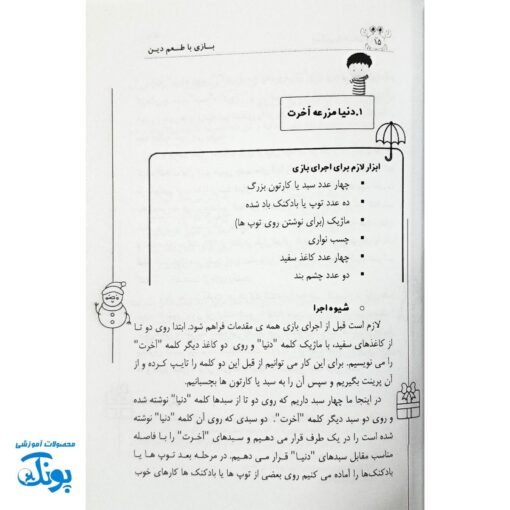 ۱۵
بازی با طعم دین
۱.دنیا مزرعه آخرت
ابزار لازم برای اجرای بازی
▪ چهار عدد سبد یا کارتون بزرگ
▪ ده عدد توپ یا بادکنک باد شده
▪ ماژیک (برای نوشتن روی توپ ها)
▪ چسب نواری
▪ چهار عدد کاغذ سفید
▪ دو عدد چشم بند
○ شیوه اجرا
لازم است قبل از اجرای بازی همه ی مقدمات فراهم شود. ابتدا روی دو تا
از کاغذهای سفید، با ماژیک کلمه "دنیا" و روی دو کاغذ دیگر کلمه "آخرت"
را می نویسیم. برای این کار می توانیم از قبل این دو کلمه را تایپ کرده و از
آن پرینت بگیریم و سپس آن را به سبد یا کارتون ها بچسبانیم.
در اینجا ما چهار سبد داریم که روی دو تا از سبدها کلمه "دنیا" نوشته شده
و روی دو سبد دیگر کلمه "آخرت". دو سبدی که روی آن کلمه "دنیا" نوشته
شده است را در یک طرف قرار می دهیم و سبدهای "آخرت" را با فاصله
مناسب مقابل سبدهای "دنیا" قرار می دهیم. در مرحله بعد توپ ها یا
بادکنک‌ها را آماده می کنیم روی بعضی از توپ ها یا بادکنک ها کارهای خوب
محصولات آموزشی
پونک